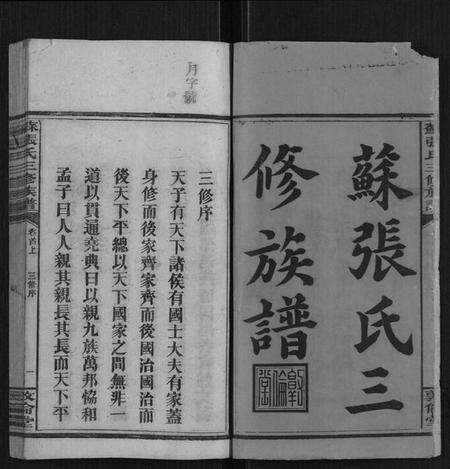 蘇張氏三
修族譜
敦倫堂
月字號
三修序
天子有天下諸侯有國士大夫有家蓋
身修而後家齊家齊而後國治國治而
後天下平總以天下國家之間無非一
道以貫通堯典曰以親九族萬邦協和
孟子曰人人親其親長其長而天下平
蘇張氏三修族譜
卷首上
三修序
一
敦倫堂